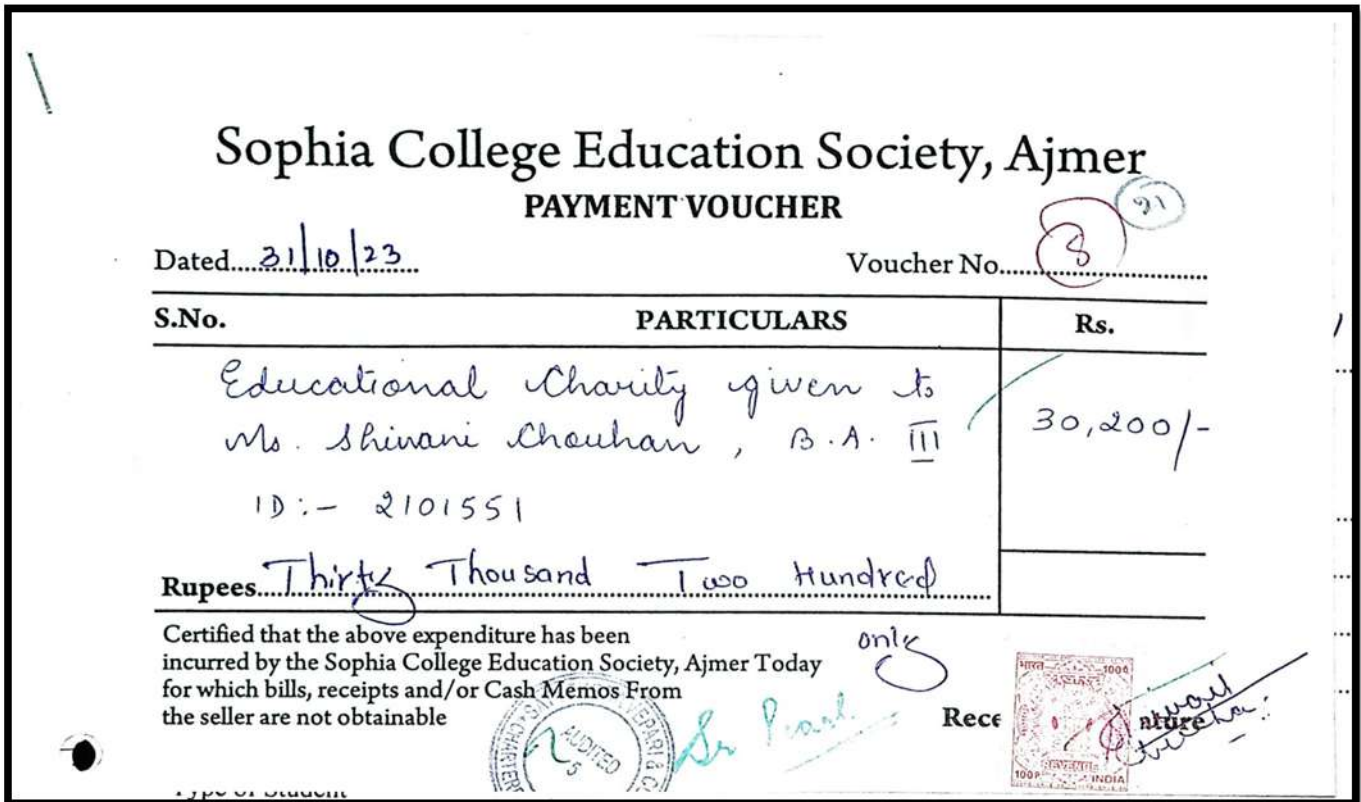 Sophia College Education Society, Ajmer
PAYMENT VOUCHER
21
Dated....31/10/23 Voucher No.....8
S.No. PARTICULARS Rs.
Educational Charity given to
Ms. Shivani Chouhan, B.A. III 30,200/-
ID:- 2101551
Rupees....Thirty Thousand Two Hundred
only
Certified that the above expenditure has been
incurred by the Sophia College Education Society, Ajmer Today
for which bills, receipts and/or Cash Memos From
the seller are not obtainable
AUDITED
Sr Pearl
Rece nature
भारत 100P
REVENUE
100P INDIA
Type of Student